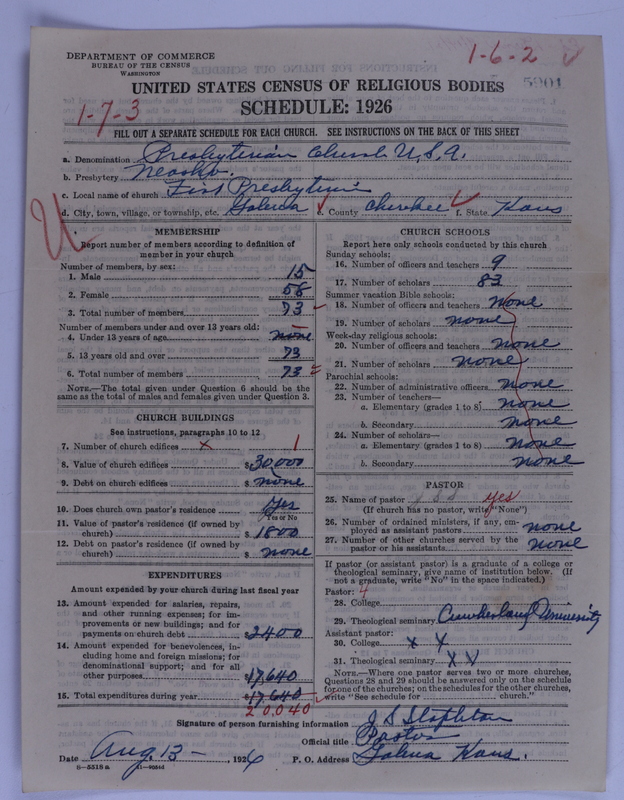 DEPARTMENT OF COMMERCE
BUREAU OF THE CENSUS
WASHINGTON
1-6-2
5904
UNITED STATES CENSUS OF RELIGIOUS BODIES
SCHEDULE: 1926
1-7-3
FILL OUT A SEPARATE SCHEDULE FOR EACH CHURCH. SEE INSTRUCTIONS ON THE BACK OF THIS SHEET
a. Denomination Presbyterian Church U.S.A.
b. Presbytery Neosho.
c. Local name of church First Presbyterian
d. City, town, village, or township, etc. Galena e. County Cherokee f. State Kans
MEMBERSHIP
Report number of members according to definition of member in your church
Number of members, by sex:
1. Male 15
2. Female 58
3. Total number of members 73
Number of members under and over 13 years old:
4. Under 13 years of age none
5. 13 years old and over 73
6. Total number of members 73
NOTE.—The total given under Question 6 should be the same as the total of males and females given under Question 3.
CHURCH BUILDINGS
See instructions, paragraphs 10 to 12
7. Number of church edifices x 1
8. Value of church edifices $30000
9. Debt on church edifices $ none
10. Does church own pastor's residence Yes
Yes or No
11. Value of pastor's residence (if owned by church) $ 1800
12. Debt on pastor's residence (if owned by church) $ none
EXPENDITURES
Amount expended by your church during last fiscal year
13. Amount expended for salaries, repairs, and other running expenses; for improvements or new buildings; and for payments on church debt $2400
14. Amount expended for benevolences, including home and foreign missions; for denominational support; and for all other purposes 17,640
15. Total expenditures during year $17,640
20,040
CHURCH SCHOOLS
Report here only schools conducted by this church
Sunday schools:
16. Number of officers and teachers 9
17. Number of scholars 83
Summer vacation Bible schools:
18. Number of officers and teachers none
19. Number of scholars none
Week-day religious schools:
20. Number of officers and teachers none
21. Number of scholars none
Parochial schools:
22. Number of administrative officers none
23. Number of teachers—
a. Elementary (grades 1 to 8) none
b. Secondary none
24. Number of scholars—
a. Elementary (grades 1 to 8) none
b. Secondary none
PASTOR
25. Name of pastor yes
(If church has no pastor, write "None")
26. Number of ordained ministers, if any, employed as assistant pastors none
27. Number of other churches served by the pastor or his assistants none
If pastor (or assistant pastor) is a graduate of a college or theological seminary, give name of institution below. (If not a graduate, write "No" in the space indicated.)
Pastor: 4
28. College
29. Theological seminary Cumberland University
Assistant pastor:
30. College x x
31. Theological seminary x x
NOTE.—Where one pastor serves two or more churches, Questions 28 and 29 should be answered only on the schedule for one of the churches; on the schedules for the other churches, write "See schedule for church."
Signature of person furnishing information J S Stapleton
Official title Pastor
Date Aug. 13 - , 1926 P. O. Address Galena Kans.
8-5518 a